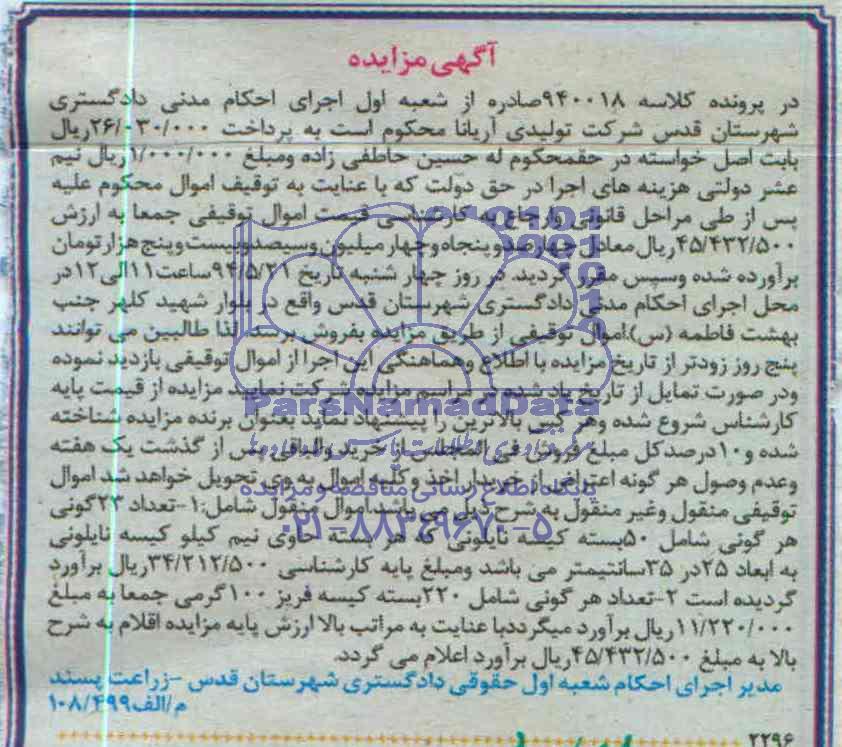 آگهی مزایده
در پرونده کلاسه ۹۴۰۰۱۸صادره از شعبه اول اجرای احکام مدنی دادگستری
شهرستان قدس شرکت تولیدی آریانا محکوم است به پرداخت ۲۶/۰۳۰/۰۰۰ریال
بابت اصل خواسته در حقمحکوم له حسین حاطفی زاده ومبلغ ۱/۰۰۰/۰۰۰ریال نیم
عشر دولتی هزینه های اجرا در حق دولت که با عنایت به توقیف اموال محکوم علیه
پس از طی مراحل قانونی وارجاع به کارشناسی قیمت اموال توقیفی جمعا به ارزش
۴۵/۴۳۲/۵۰۰ریال معادل چهارصدوپنجاه وچهار میلیون وسیصدوبیست وپنج هزارتومان
برآورده شده وسپس مقرر گردید، در روز چهار شنبه تاریخ ۹۴/۵/۲۱ساعت۱۱الی۱۲در
محل اجرای احکام مدنی دادگستری شهرستان قدس واقع در بلوار شهید کلهر جنب
بهشت فاطمه (س)،اموال توقیفی از طریق مزایده بفروش برسد، لذا طالبین می توانند
پنج روز زودتر از تاریخ مزایده با اطلاع وهماهنگی این اجرا از اموال توقیفی بازدید نموده
ودر صورت تمایل از تاریخ یاد شده در مراسم مزایده شرکت نمایند مزایده از قیمت پایه
کارشناس شروع شده وهر کسی بالاترین را پیشنهاد نماید بعنوان برنده مزایده شناخته
شده و۱۰درصدکل مبلغ فروش فی المجلس از خرید والباقی پس از گذشت یک هفته
وعدم وصول هر گونه اعتراض از خریدار اخذ وکلیه اموال به وی تحویل خواهد شد اموال
توقیفی منقول وغیر منقول به شرح ذیل می باشد.اموال منقول شامل:۱-تعداد ۲۳گونی
هر گونی شامل ۵۰بسته کیسه نایلونی که هر بسته حاوی نیم کیلو کیسه نایلونی
به ابعاد ۲۵در ۳۵سانتیمتر می باشد ومبلغ پایه کارشناسی ۳۴/۲۱۲/۵۰۰ریال برآورد
گردیده است ۲-تعداد هر گونی شامل ۲۲۰بسته کیسه فریز ۱۰۰گرمی جمعا به مبلغ
۱۱/۲۲۰/۰۰۰ریال برآورد میگرددبا عنایت به مراتب بالا ارزش پایه مزایده اقلام به شرح
بالا به مبلغ ۴۵/۴۳۲/۵۰۰ریال برآورد اعلام می گردد.
مدیر اجرای احکام شعبه اول حقوقی دادگستری شهرستان قدس -زراعت پسند
م/الف۱۰۸/۴۹۹
۲۲۹۶
ParsNamadData
پایگاه اطلاع رسانی مناقصه و مزایده
۰۲۱-۸۸۳۴۹۶۷۰-۵